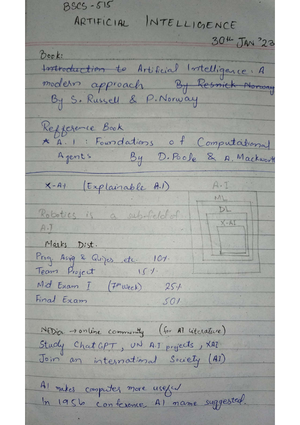 BSCS-515
ARTIFICIAL INTELLIGENCE
30th JAN '23
Book:
Introduction to Artificial Intelligence: A
modern approach By Resnick Norway
By S. Russell & P. Norway
Refference Book
* A.I: Foundations of Computational
Agents By D. Poole & A. Mackworth
X-AI (Explainable A.I) A.I
ML
DL
X-AI
Robotics is a subfield of
A.I
Marks Dist.
Prog Assig & Quizes etc. 10%
Team Project 15%
Mid Exam I (7th week) 25%
Final Exam 50%
online community (for AI literature)
Study ChatGPT, UN A.I projects, XAI
Join an international Society (AI)
AI makes computer more useful
In 1956 conference AI name suggested.